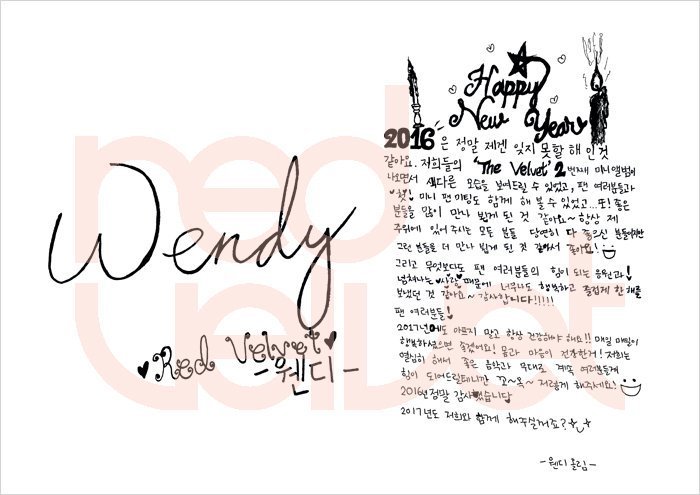 red
velvet
Wendy
Red Velvet
-웬디-
Happy
New Year
2016은 정말 제겐 잊지 못할 해인것
같아요. 저희들의 'The Velvet' 2번째 미니앨범이
나오면서 색다른 모습을 보여드릴 수 있었고, 팬 여러분들과
첫! 미니 팬미팅도 함께 해 볼 수 있었고...또! 좋은
분들을 많이 만나 뵙게 된 것 같아요~ 항상 제
주위에 있어주시는 모든 분들 당연히 다 좋으신 분들이지만
그런 분들을 더 만나 뵙게 된 것 같아서 좋아요!
그리고 무엇보다도 팬 여러분들의 힘이 되는 응원과
넘쳐나는 사랑 때문에 너무나도 행복하고 즐겁게 한해를
보냈던 것 같아요~ 감사합니다!!!!!
팬 여러분들!
2017년에도 아프지 말고 항상 건강해야 해요!! 매일 매일이
행복하셨으면 좋겠어요! 몸과 마음이 건강한게! 저희는
열심히 해서 좋은 음악과 무대로 계속 여러분들께
힘이 되어드릴테니깐 꼬~옥~ 저렇게 해주세요!
2016년 정말 감사했습니다
2017년도 저희와 함께 해주실거죠?
-웬디 올림-